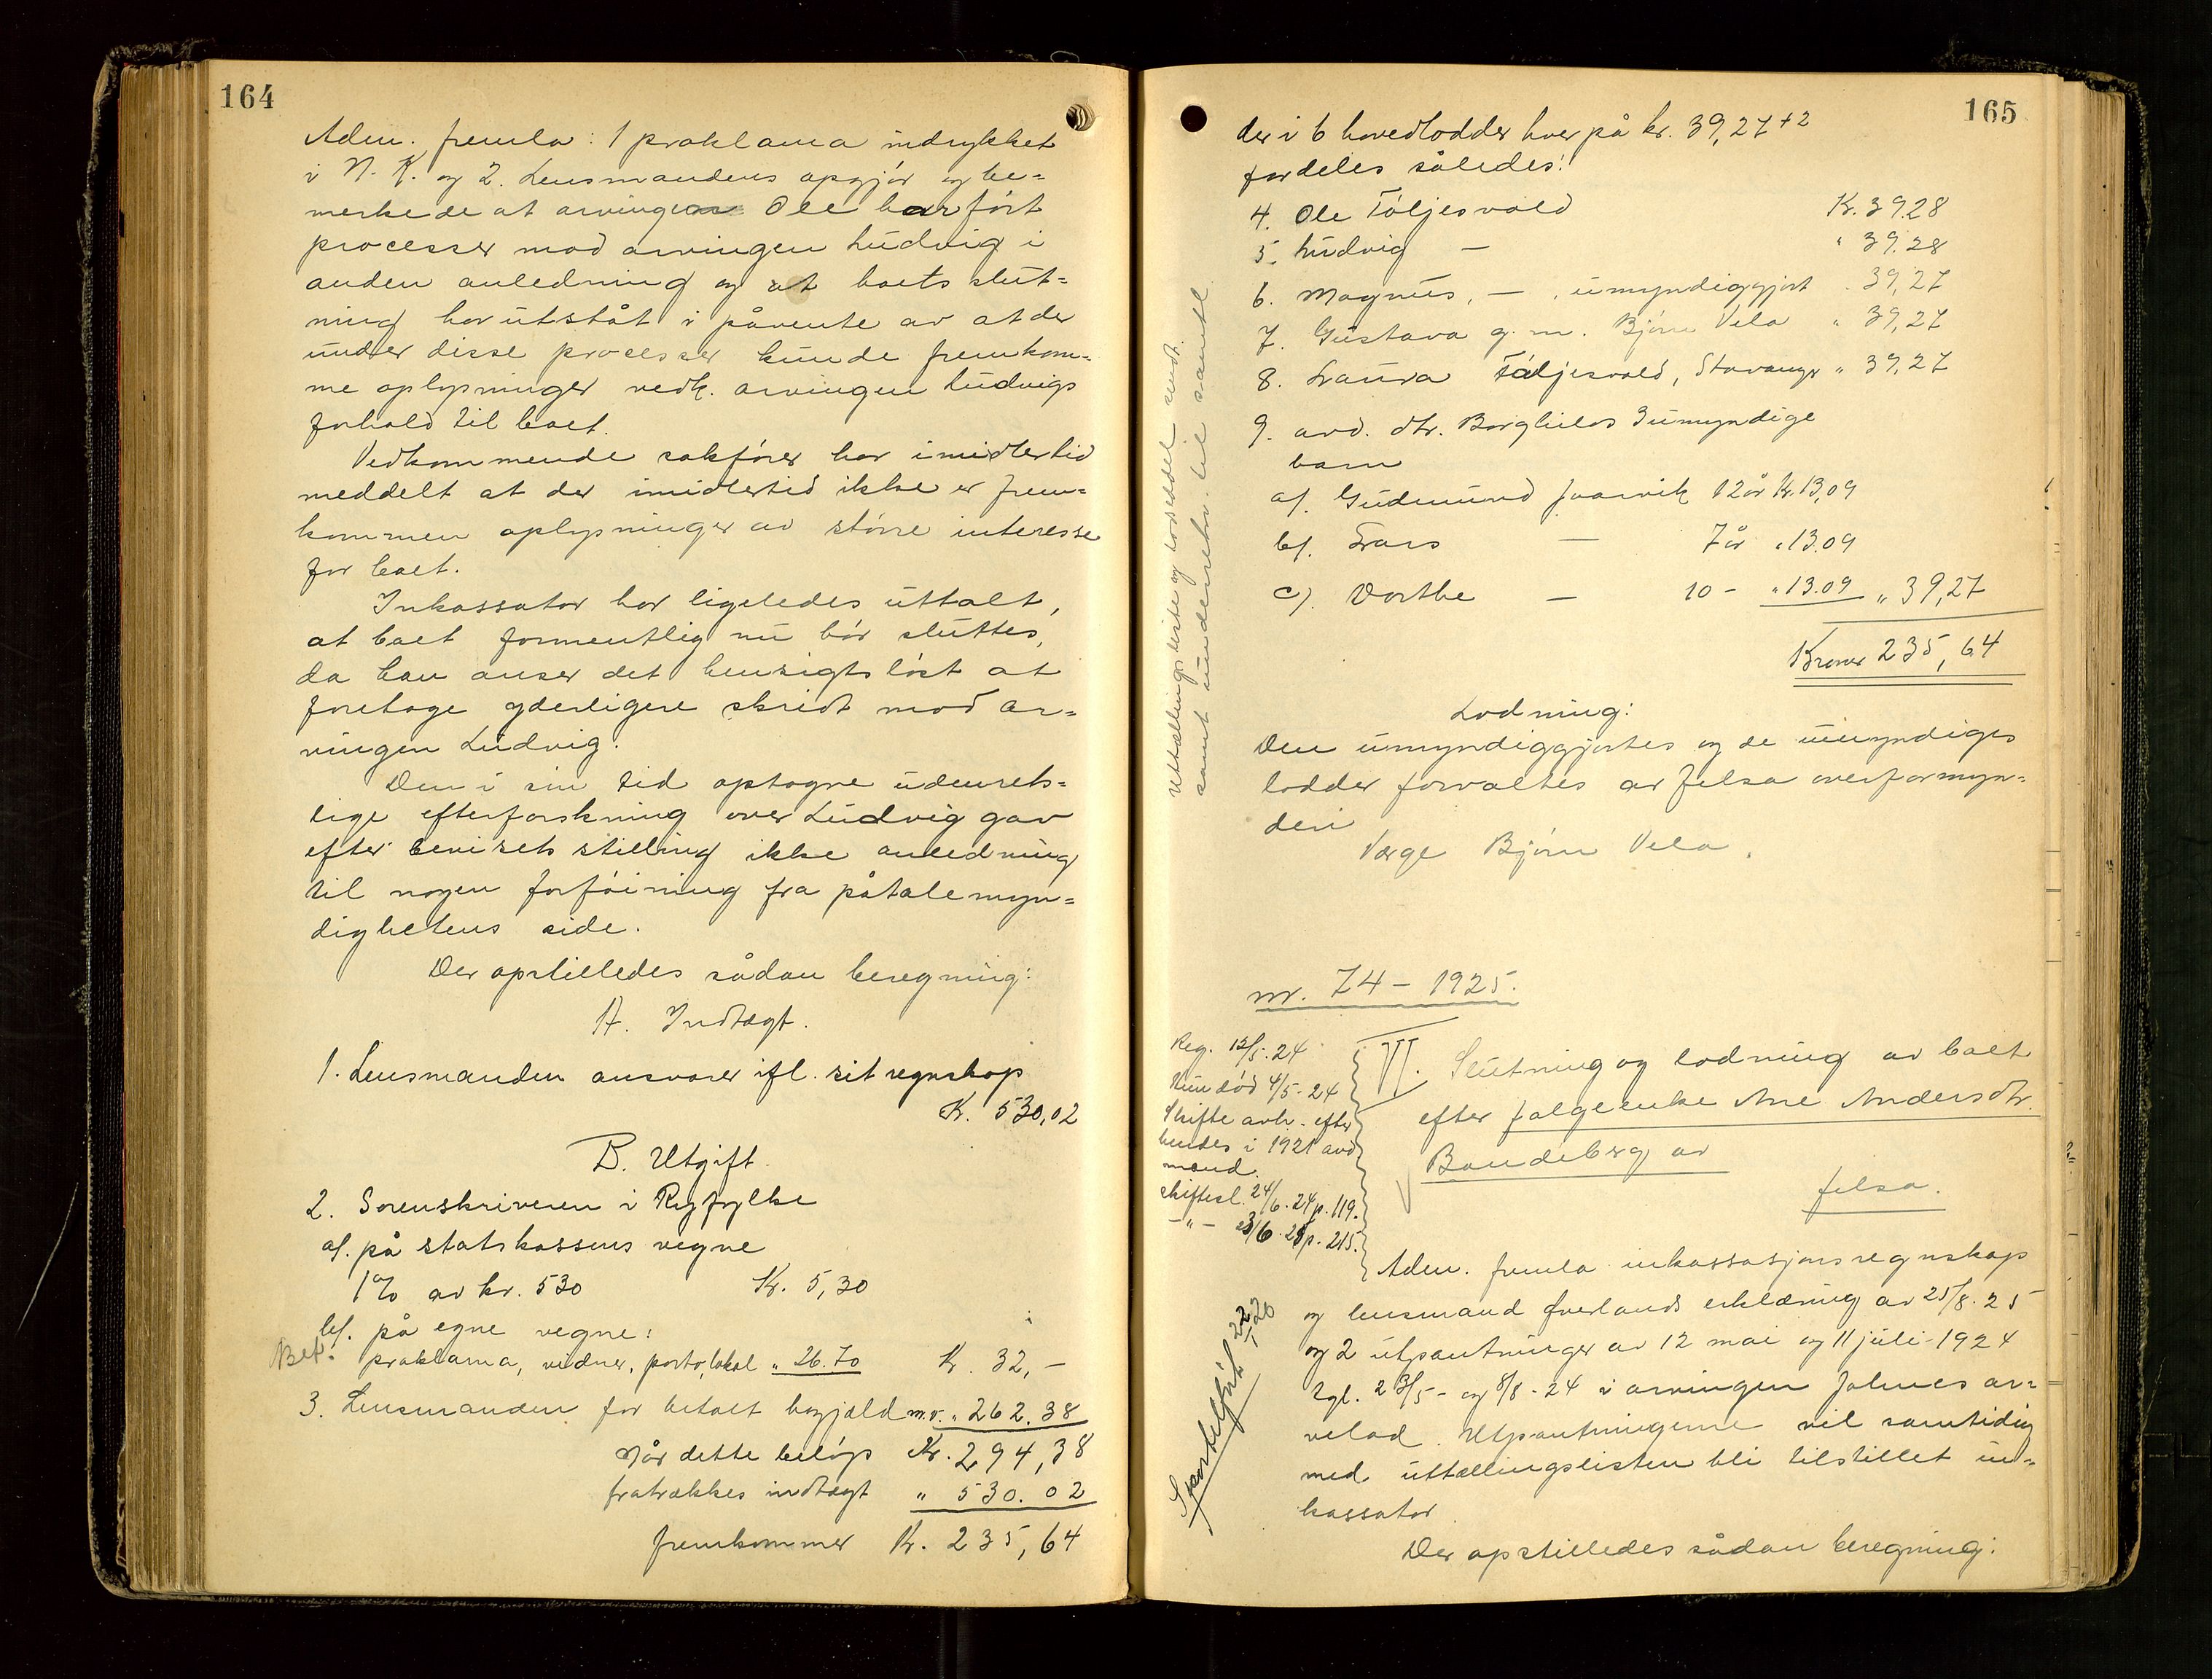 164
Adm. fremla: 1 proklama indrykket
i N. K. og 2. Lensmandens opgjør og be=
merkede at arvingen Ole har ført
processer mod arvingen Ludvig i
anden anledning og at boets slut=
ning har utståt i påvente av at der
under disse processer kunde fremkom=
me oplysninger vedk. arvingen Ludvigs
forhold til boet.
Vedkommende sakfører har imidlertid
meddelt at der imidlertid ikke er frem=
kommen oplysninger av større interesse
for boet.
Inkassator har ligeledes uttalt,
at boet formentlig nu bør sluttes,
da han anser det hensigtsløst at
foretage yderligere skridt mod ar=
vingen Ludvig.
Den i sin tid optagne udenrets=
lige efterforskning over Ludvig gav
efter bevisets stilling ikke anledning
til nogen forføining fra påtalemyn=
dighetens side.
Der opstilledes sådan beregning:
A. Indtægt.
1. Lensmanden ansvarer ifl. sit regnskap
Kr. 530,02
B. Utgift.
2. Sorenskriveren i Ryfylke
a/. på statskassens vegne
1% av kr. 530 Kr. 5,30
b/. på egne vegne:
Bet. proklama, vidner, porto, lokal " 26.70 Kr. 32,-
3. Lensmanden for betalt bogjæld m.v. " 262.38
Når dette beløp Kr. 294,38
fratrækkes indtægt " 530.02
fremkommer Kr. 235,64
165
der i 6 hovedlodder hver på kr. 39,27 + 2
fordeles således:
4. Ole Tøljesvold Kr. 39.28
5. Ludvig — " 39.28
6. Magnus, — , umyndiggjort " 39,27
7. Gustava g. m. Bjørn Vela " 39,27
8. Laura Tøljesvold, Stavanger " 39,27
9. avd. dtr. Borghilds 3 umyndige
barn
a/. Gudmund 12 år Kr. 13,09
b/. Lars — 7 år " 13.09
c/. Dorthe — 10 - " 13.09 " 39,27
Kroner 235,64
Utbetalingsliste og lodseddel sendt.
samt underretn. til samtl.
Lodning:
Den umyndiggjortes og de umyndiges
lodder forvaltes av Jelsa overformyn=
deri
Verge Bjørn Vela.
nr. 74 - 1925.
Reg. 12/5.24
Hun død 4/5 - 24
Skifte avh. efter
hendes i 1921 avd
mand.
skiftesl. 24/6.24 p. 119.
— " — 23/6.25 p. 215.
VI. Slutning og lodning av boet
efter følgeenke Ane Andersdtr.
Bandeberg av
Jelsa.
Sportelført
Adm. fremla inkassasjonsregnskap
og lensmand Øverlands erklæring av 25/8.25
og 2 utpantninger av 12 mai og 11 juli 1924
tgl. 23/5 - og 8/8 - 24 i arvingen Johnes ar=
velod. Utpantningerne vil samtidig
med uttællingslisten bli tilstillet in=
kassator.
Der opstilledes sådan beregning: